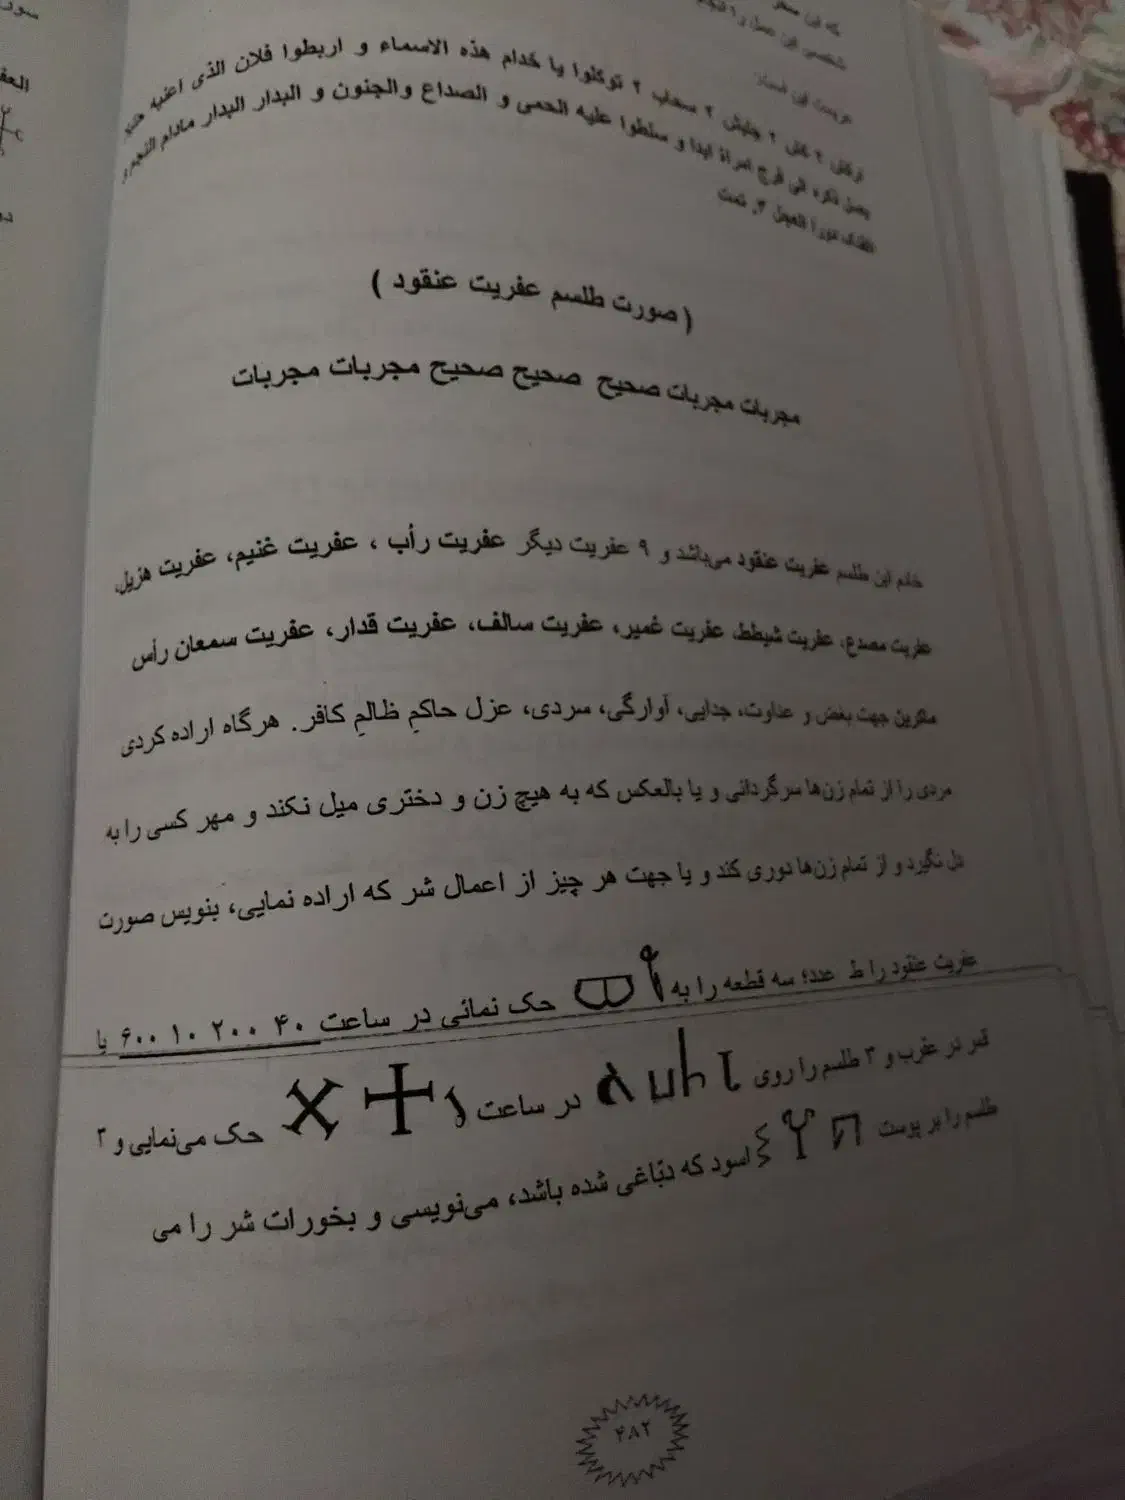 که این
شخصی این عمل را
توکلوا یا خدام هذه الاسماء و اربطوا فلان الذی اعنیه حتی
۲ سحاب ۲
یصل ذکره الی فرج امراة ابدا و سلطوا علیه الحمی و الصداع والجنون و البدار البدار مادام النجم و
الفلک دورا العجل ۳، تمت
( صورت طلسم عفریت عنقود )
مجربات مجربات صحیح صحیح صحیح مجربات مجربات
خادم این طلسم عفریت عنقود می‌باشد و ۹ عفریت دیگر عفریت رأب ، عفریت غنیم، عفریت هزیل،
عفریت مصدع، عفریت شیطط، عفریت غمیر، عفریت سالف، عفریت قدار، عفریت سمعان رأس
ماکرین جهت بغض و عداوت، جدایی، آوارگی، سردی، عزل حاکمِ ظالمِ کافر. هرگاه اراده کردی
مردی را از تمام زن‌ها سرگردانی و یا بالعکس که به هیچ زن و دختری میل نکند و مهر کسی را به
دل نگیرد و از تمام زن‌ها دوری کند و یا جهت هر چیز از اعمال شر که اراده نمایی، بنویس صورت
عفریت عنقود را ط عدد؛ سه قطعه را به حک نمائی در ساعت ۴۰ ۲۰۰ ۱۰ ۶۰۰ یا
قمر در عقرب و ۳ طلسم را روی در ساعت حک می‌نمایی و ۳
طلسم را بر پوست اسود که دبّاغی شده باشد، می‌نویسی و بخورات شر را می
۴۸۲